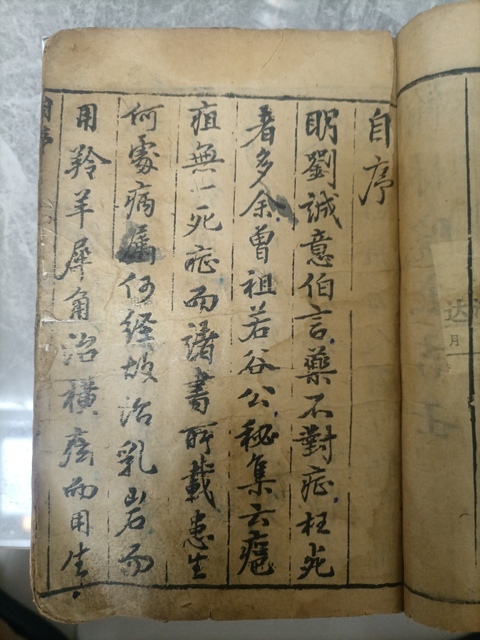 自序
明劉誠意伯言藥不對症枉死
者多余曾祖若谷公秘集云癰
疽無一死症而諸書所載患生
何處病屬何經故治乳岩而
用羚羊犀角治橫痃而用生
自序
达
月